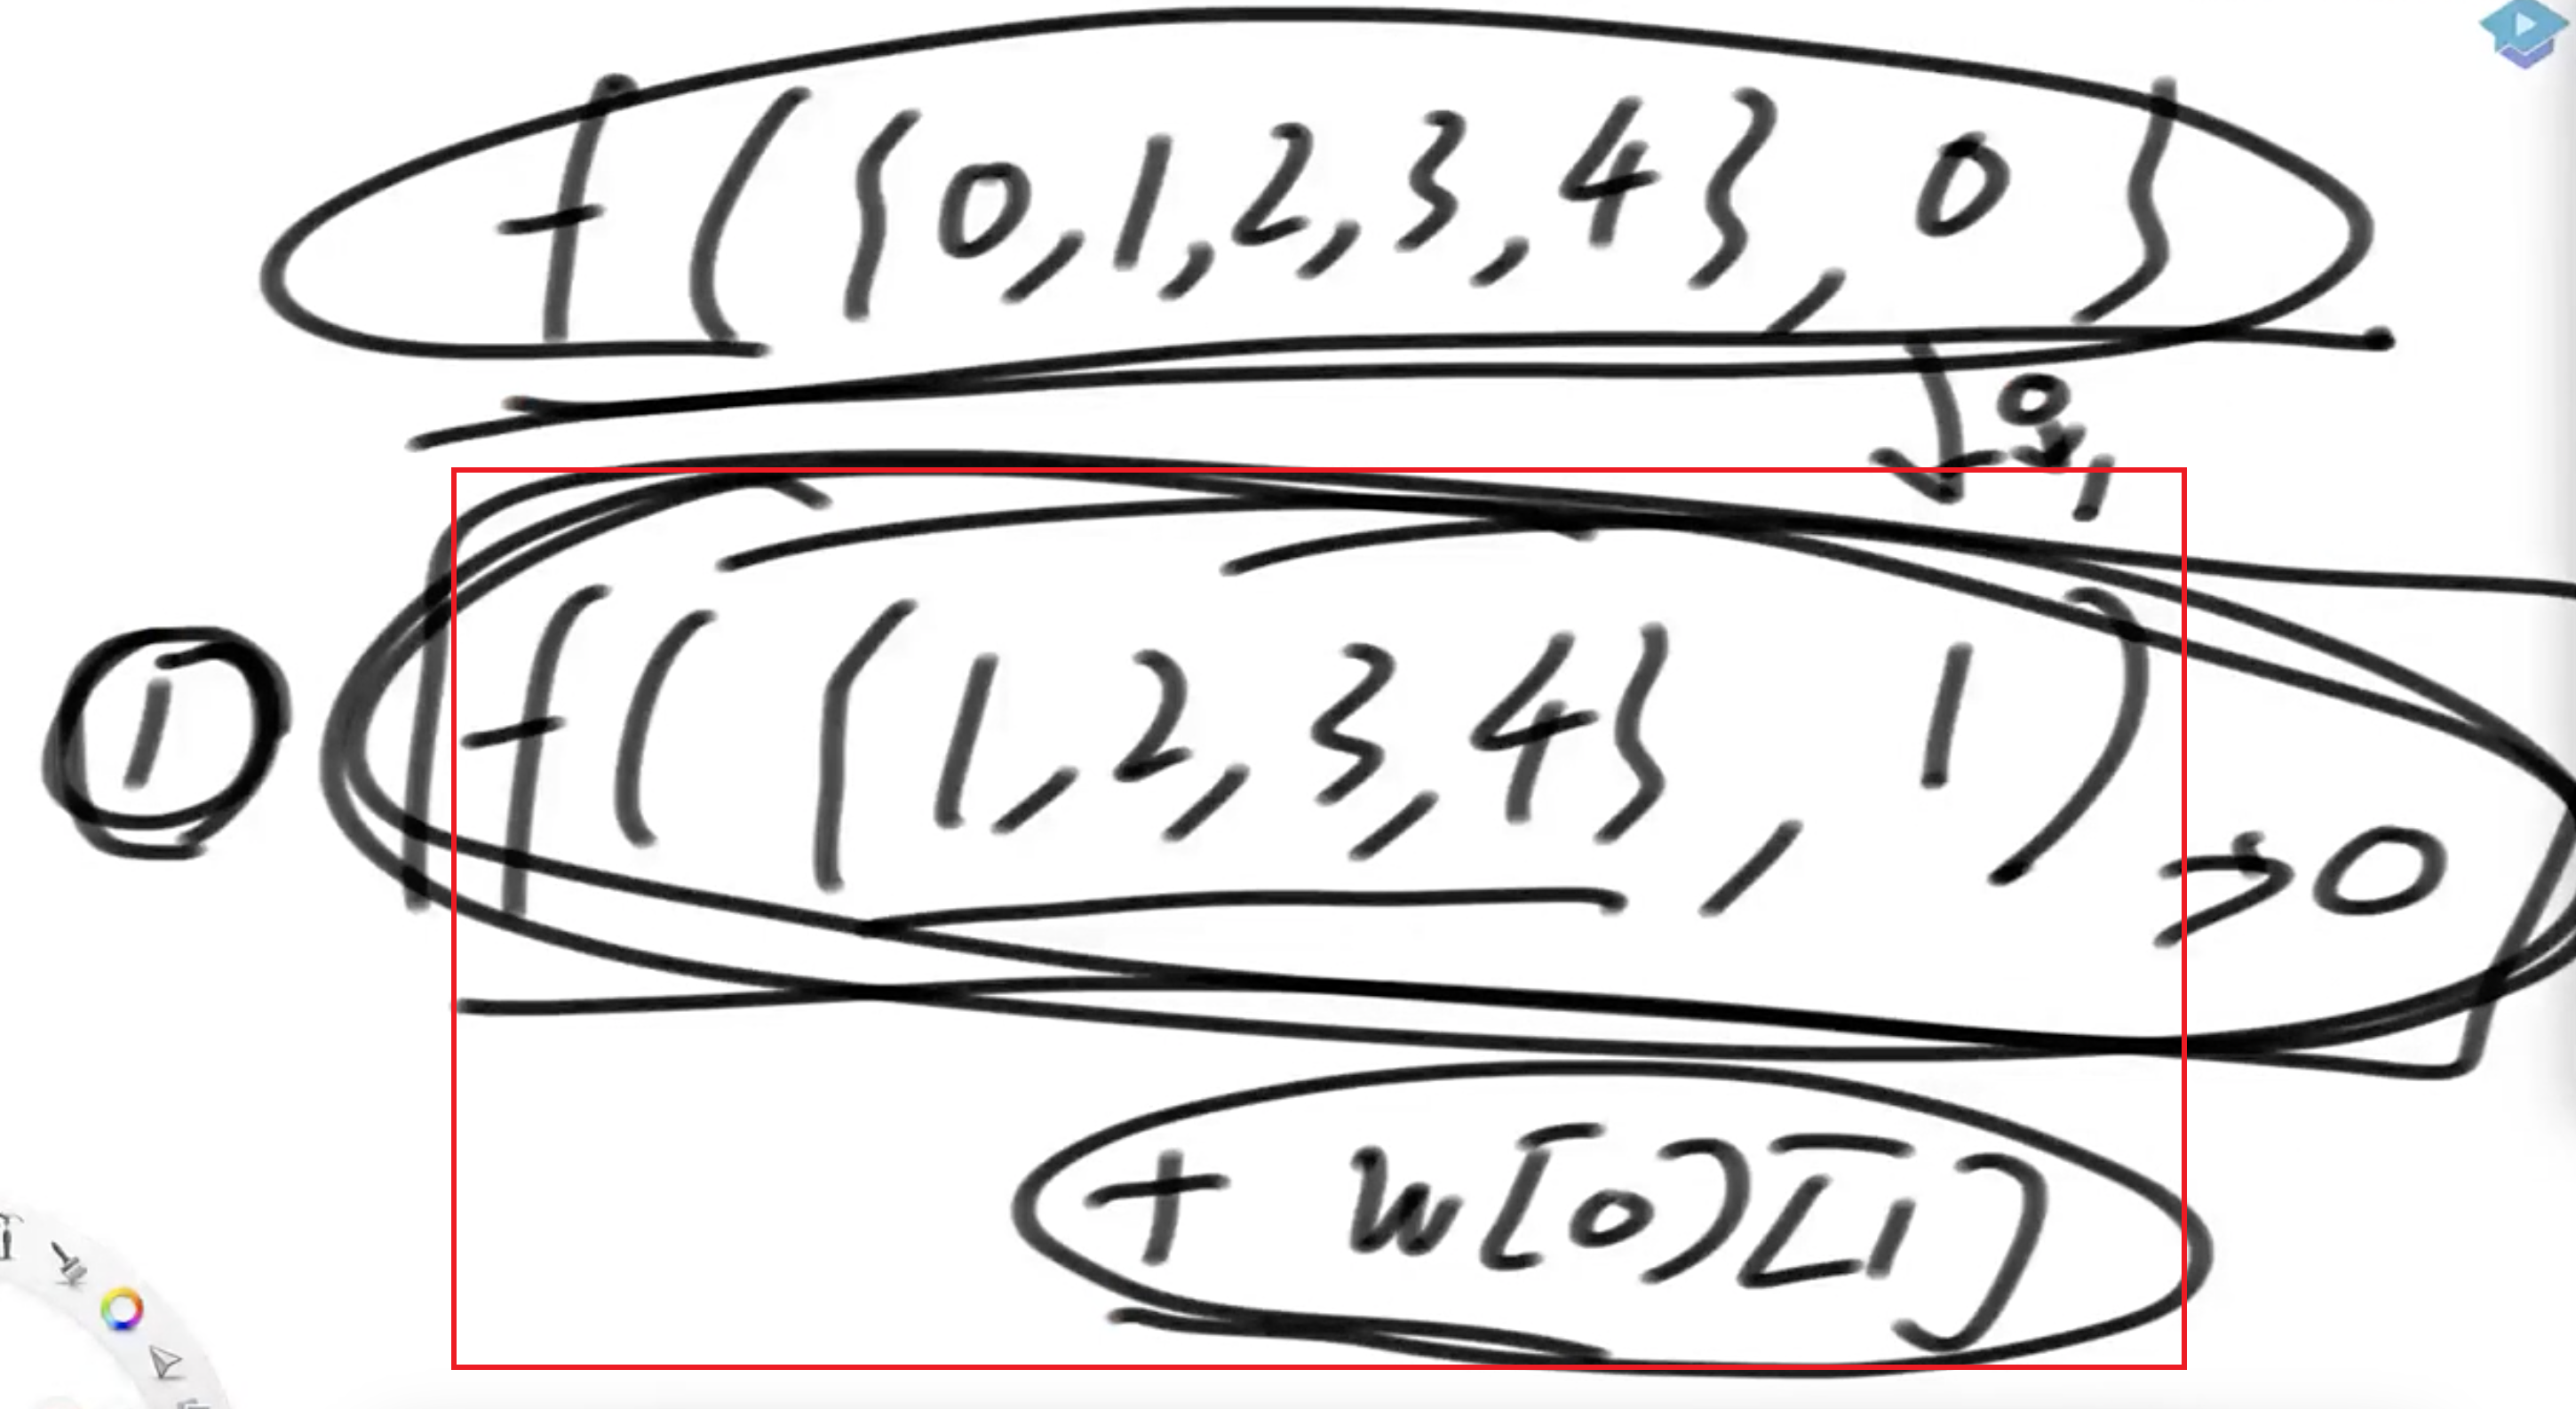 f({0,1,2,3,4}, 0}
0,1
① f({1,2,3,4}, 1) →0
+ w[0][1]